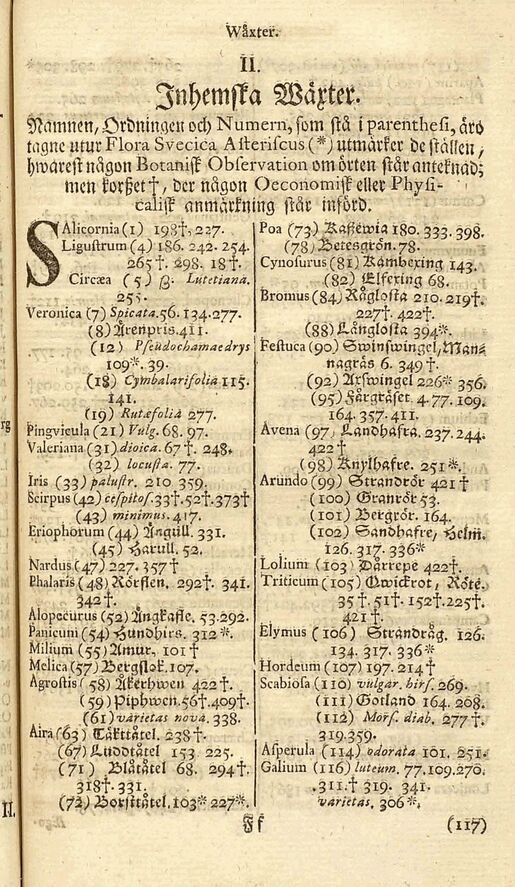 Wåxter.
II.
Inhemska Wåxter.
Namnen, Ordningen och Numern, som stå i parenthesi, äro
tagne utur Flora Svecica Asteriscus (*) utmärker de ställen,
hwarest någon Botanisk Observation om örten står anteknad;
men korßet †, der någon Oeconomisk eller Physi-
calisk anmärkning står införd.
SAlicornia (1) 198†, 227.
Ligustrum (4) 186. 242. 254.
265†. 298. 18†.
Circæa (5) β. Lutetiana.
255.
Veronica (7) Spicata. 56. 134. 277.
(8) Ärenpris. 411.
(12) Pseudochamaedrys
109*. 39.
(18) Cymbalarifolia 115.
141.
(19) Rutæfolia 277.
Pingvicula (21) Vulg. 68. 97.
Valeriana (31) dioica. 67†. 248.
(32) locusta. 77.
Iris (33) palustr. 210. 359.
Scirpus (42) cespitos. 33†. 52†. 373†
(43) minimus. 417.
Eriophorum (44) Ängull. 331.
(45) Harull. 52.
Nardus (47) 227. 357†
Phalaris (48) Rörflen. 292†. 341.
342†.
Alopecurus (52) Ängkafle. 53. 292.
Panicum (54) Hundhirs. 312*.
Milium (55) Amur, 101†
Melica (57) Bergslok. 107.
Agrostis (58) Åkerhwen 422†.
(59) Piphwen. 56†. 409†.
(61) varietas nova. 338.
Aira (63) Täkttåtel. 238†.
(67) Luddtåtel 153 225.
(71) Blåtåtel 68. 294†.
318†. 331.
(72) Borsttåtel. 103* 227*.
Poa (73) Kaffewia 180. 333. 398.
(78) Betesgrön. 78.
Cynosurus (81) Kambexing 143.
(82) Elfexing 68.
Bromus (84) Råglosta 210. 219†.
227†. 422†.
(88) Långlosta 394*.
Festuca (90) Swinswingel, Man-
nagräs 6. 349†.
(92) Axswingel 226* 356.
(95) Färgräset. 4. 77. 109.
164. 357. 411.
Avena (97) Landhafra. 237. 244.
422†
(98) Knylhafre. 251*.
Arundo (99) Strandrör 421†
(100) Granrör 53.
(101) Bergrör. 164.
(102) Sandhafre, Helm.
126. 317. 336*
Lolium (103) Därrepe 422†.
Triticum (105) Qwickrot, Röte.
35†. 51†. 152†. 225†.
421†.
Elymus (106) Strandråg. 126.
134. 317. 336*
Hordeum (107) 197. 214†
Scabiosa (110) vulgar. hirs. 269.
(111) Gotland 164. 208.
(112) Mors. diab. 277†.
319. 359.
Asperula (114) odorata 101. 251.
Galium (116) luteum. 77. 109. 276.
311.† 319. 341.
varietas. 306*.
Ff
(117)
rg
II.